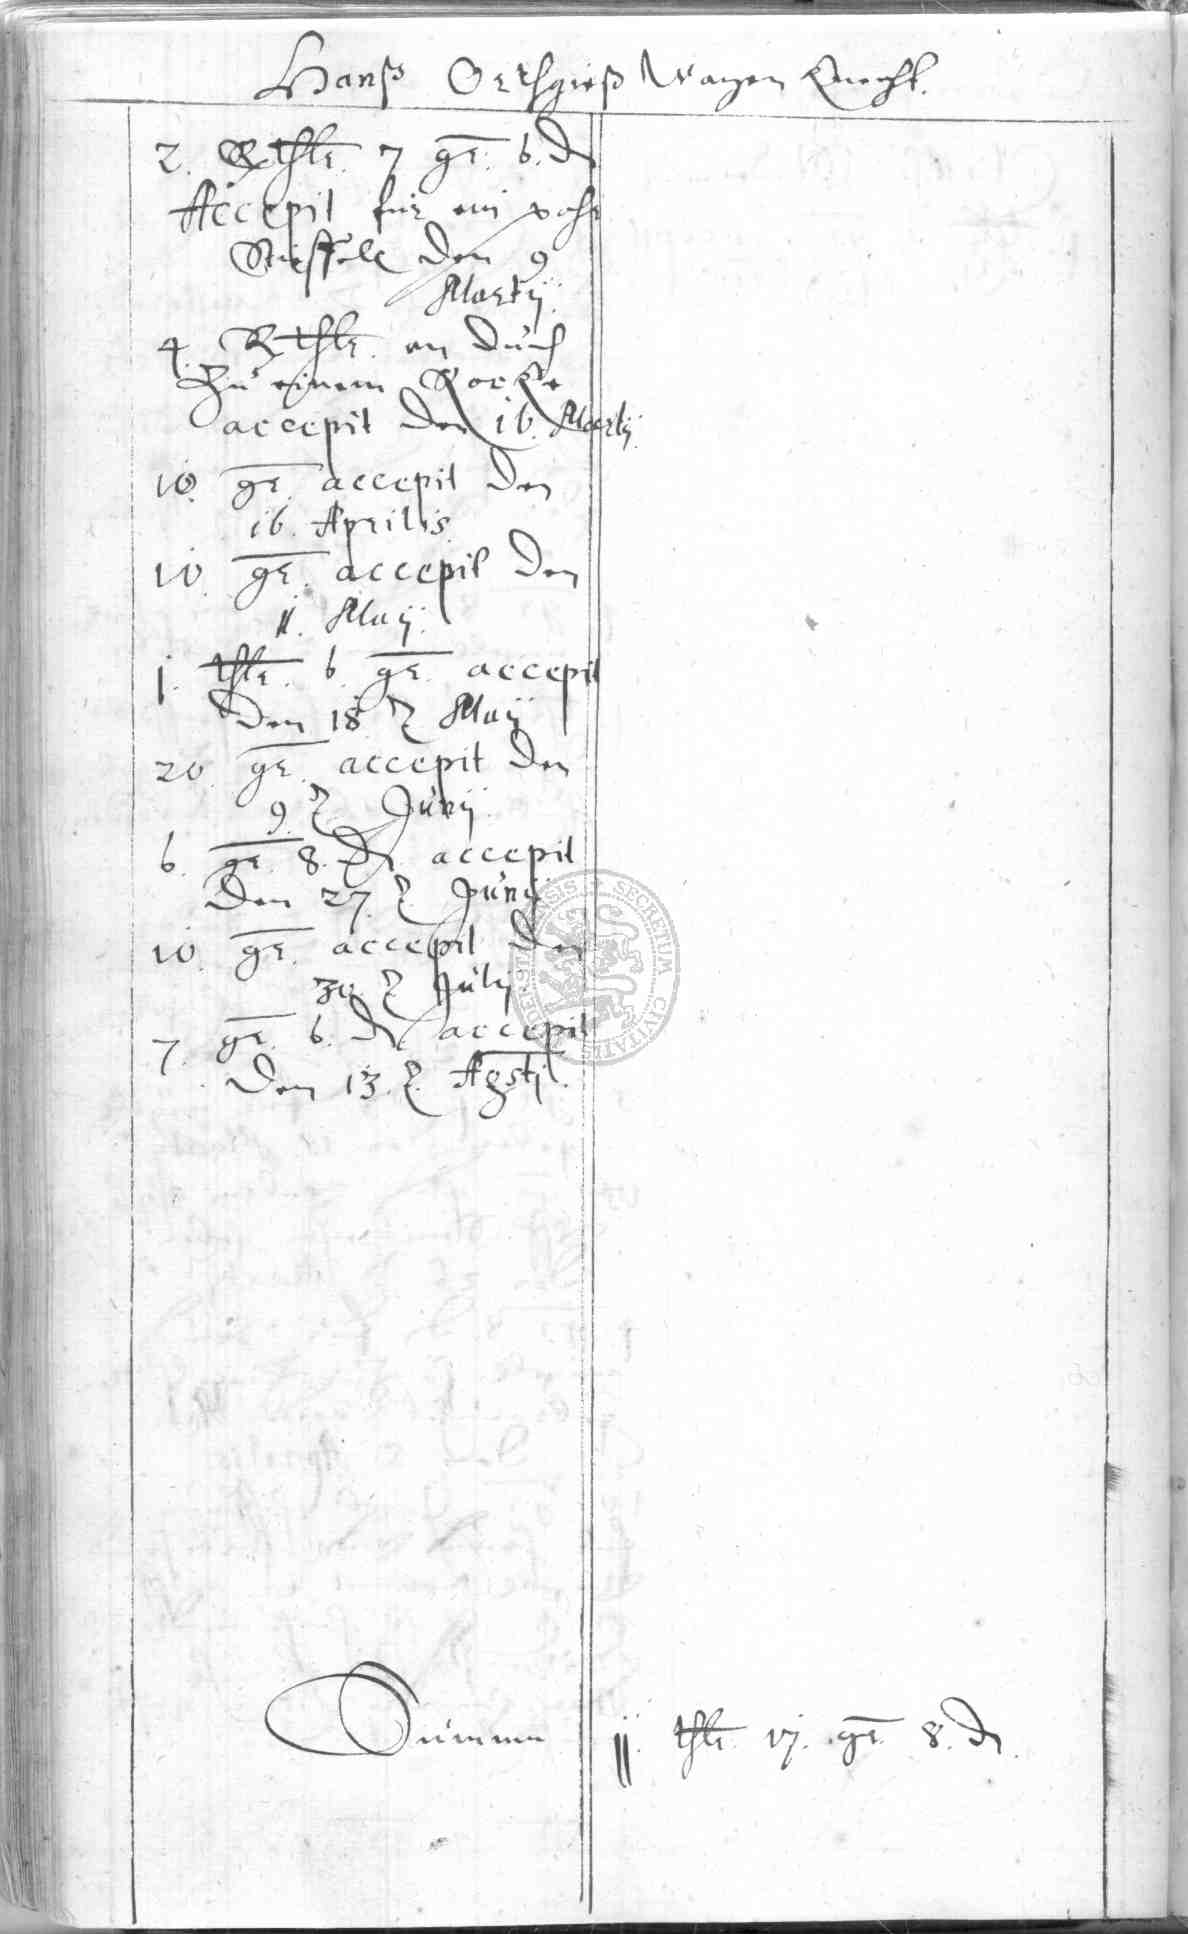 Hanß Ortsgieß Wagen Knecht.
2. Rthlr. 7 gr. 6. d
Accepit für ein pahr
Stieffell den 9
Martij.
4. Rthlr. an duch
Zu einem Rocke
accepit den 16. Martij
10. gr. accepit den
16. Aprilis.
10. gr. accepit den
11. Maij.
1. thlr. 6. gr. accepit
den 18 Maij
20 gr. accepit den
9. Junij.
6. gr. 8. d accepit
den 27. Junij
10. gr. accepit den
30 Julij.
7. gr. 6. d accepit
den 13. Agsti.
Summa 11. thlr. 17. gr. 8. d.
SECRETUM CIVITATIS